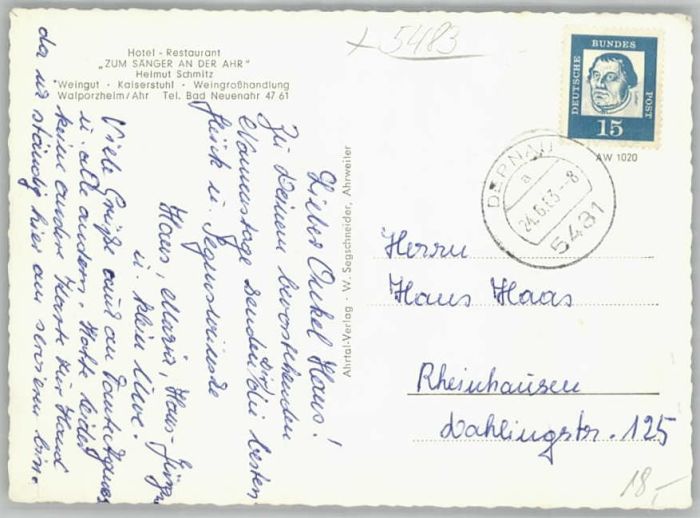 Hotel - Restaurant
„ZUM SÄNGER AN DER AHR"
Helmut Schmitz
Weingut · Kaiserstuhl · Weingroßhandlung
Walporzheim/Ahr Tel. Bad Neuenahr 47 61
5483
DEUTSCHE BUNDES POST
15
AW 1020
DERNAU
a
24.6.63.-8
5481
Ahrtal-Verlag · W. Segschneider, Ahrweiler
Lieber Onkel Hans!
Zu Deinem bevorstehenden
Namenstage senden wir die besten
Glück u. Segenswünsche
Hans, Maria, Hans-Jürgen
u. klein Uwe.
Viele Grüße auch an Tante Agnes
u. alle andern. Hatte leider
keine andere Karte zur Hand
da ich ständig hier am servieren bin.
Herrn
Hans Haas
Rheinhausen
Dahlingstr. 125
18,-